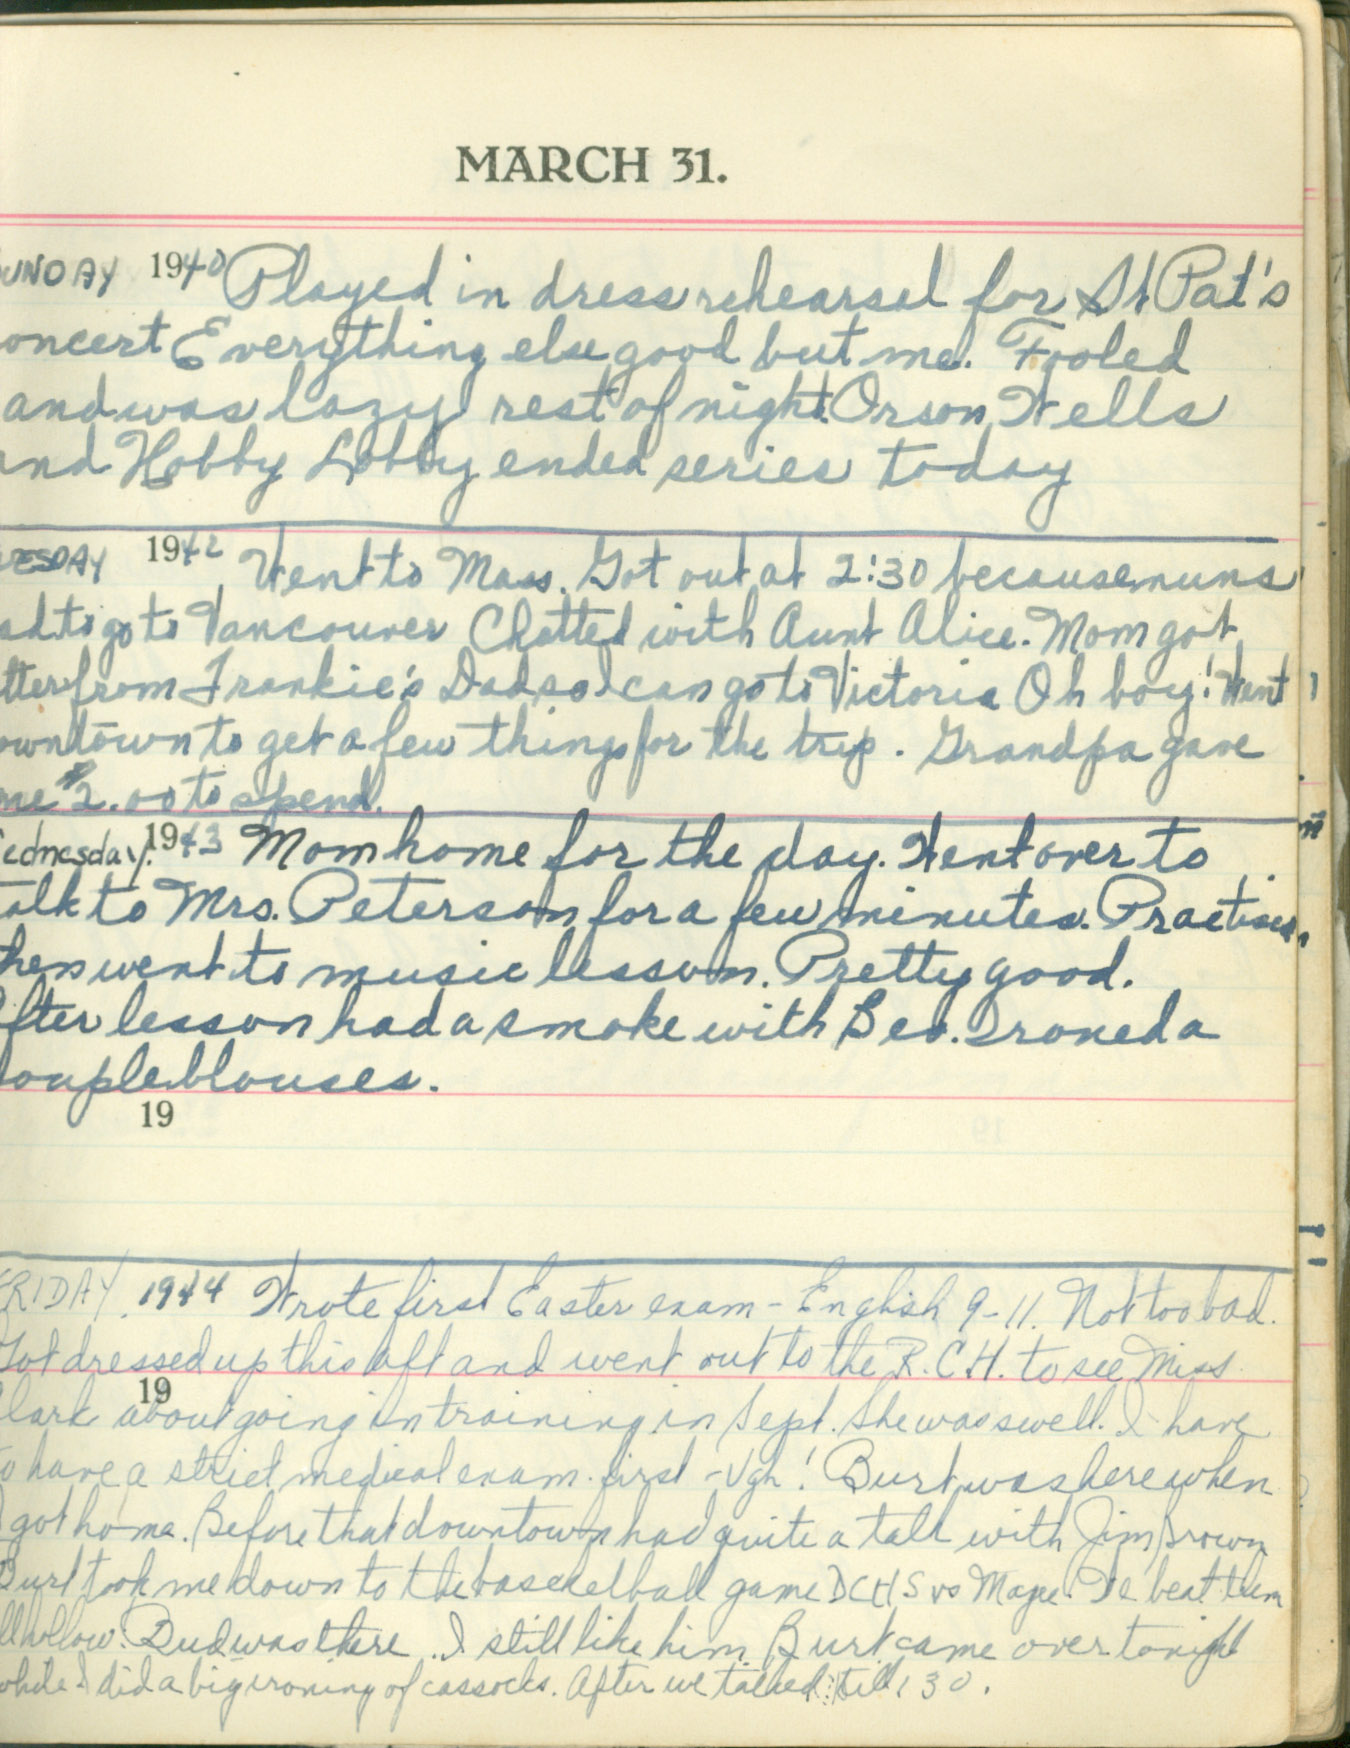 MARCH 31.
UNDAY 1940 Played in dress rehearsel for St Pat's
oncert Everything else good but me. Fooled
and was lazy rest of night. Orson Wells
and Hobby Lobby ended series today
UESDAY 1942 Went to Mass. Got out at 2:30 because nuns
ad to go to Vancouver Chatted with Aunt Alice. Mom got
tter from Frankie's Dad so I can go to Victoria Oh boy! Went
owntown to get a few things for the trip. Grandpa gave
me $2.00 to spend.
ednesday. 1943 Mom home for the day. Went over to
talk to Mrs. Peterson for a few minutes. Practised,
then went to music lesson. Pretty good.
After lesson had a smoke with Bev. Ironed a
couple blouses.
19
FRIDAY. 1944 Wrote first Easter exam - English 9-11. Not too bad.
Got dressed up this aft and went out to the R.C.H. to see Miss
19
Clark about going in training in Sept. She was swell. I have
to have a strict medical exam. first - Ugh! Burt was here when
I got home. Before that downtown had quite a talk with Jim Brown
Burt took me down to the basketball game DCHS vs Magee. We beat them
all hollow. Dud was there. I still like him. Burt came over tonight
while I did a big ironing of cassocks. After we talked till 1 30.